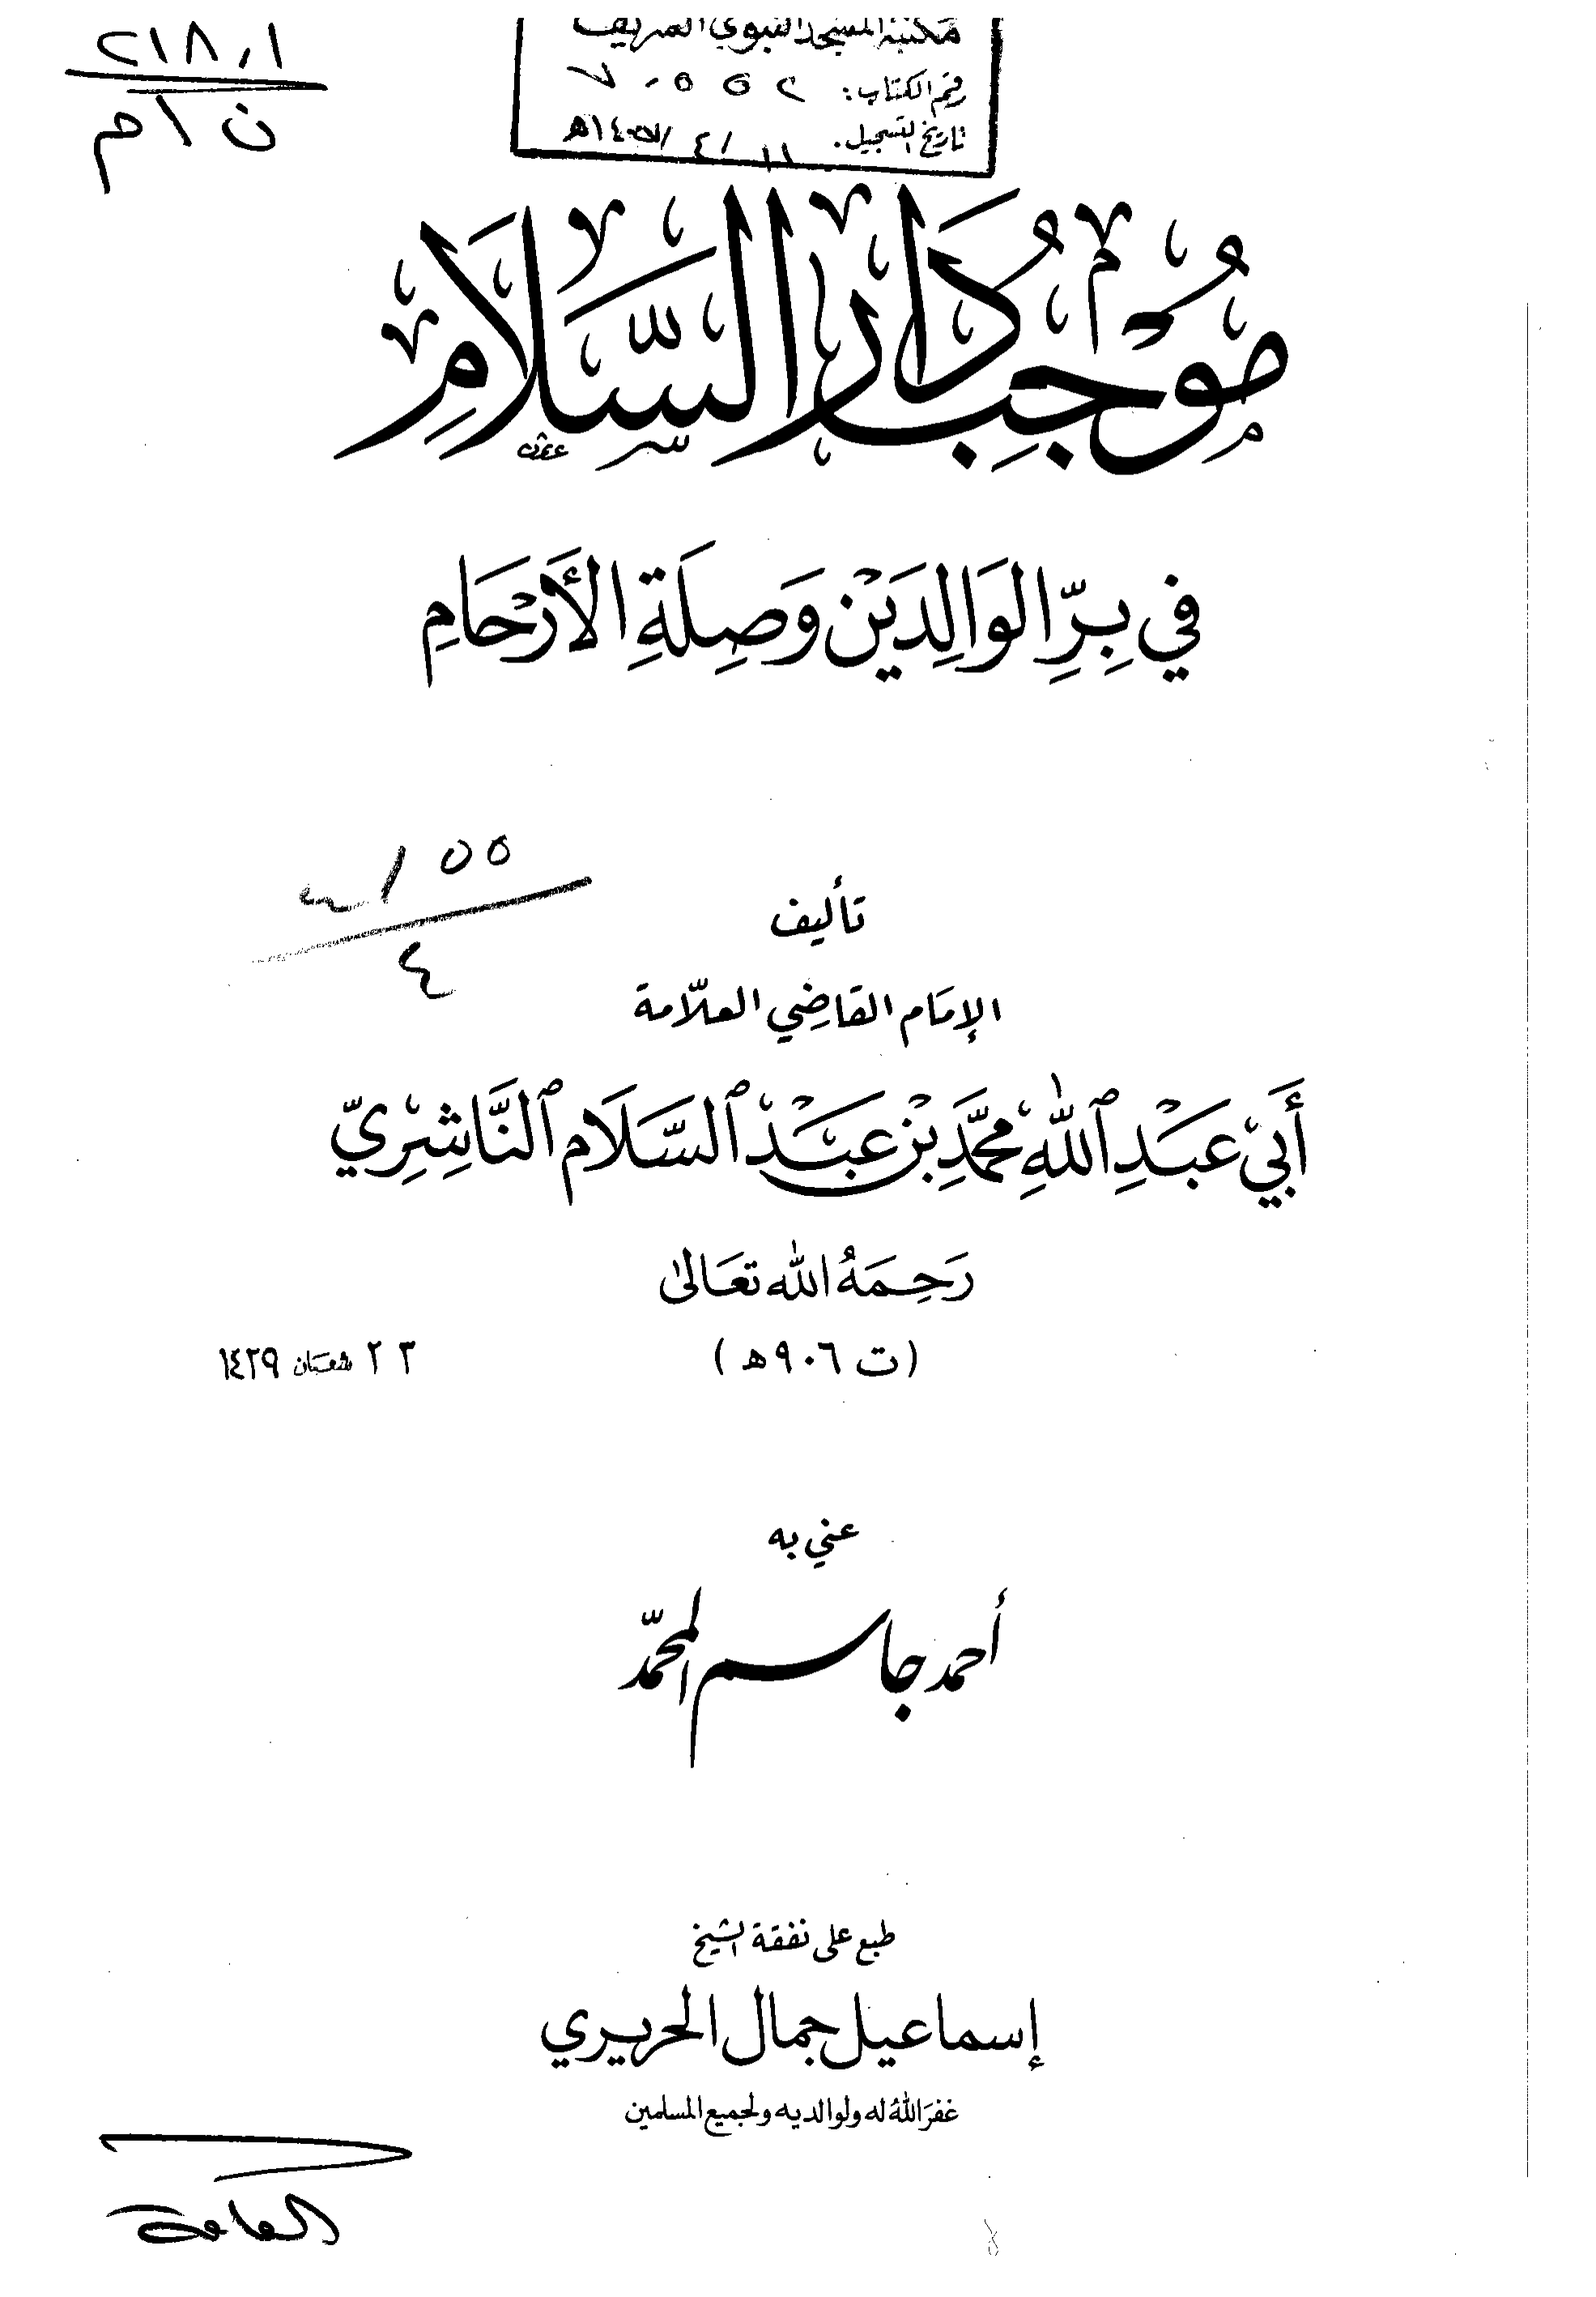 ٢١٨,١
ن ا م
مكتبة المسجد النبوي الشريف
رقم الكتاب:
تاريخ التسجيل. ١١ / ٤ /
مُوْجِبُ دَارِ السَّلَامِ
في بِرِّ الوَالِدَيْن وَصِلَةِ الأَرْحَامِ
٥٥
٤
تأليف
الإمَام القَاضِي العلّامة
أَبِيْ عَبْدِ ٱللّٰهِ مُحَمَّدِ بْنِ عَبْدِ ٱلسَّلَام ٱلنَّاشِرِيّ
رَحِمَهُ الله تعَالىٰ
(ت ٩٠٦ هـ)
٢٣ شعبَان ١٤٢٩
عني به
أحمد جاسم المحمّد
طبع على نفقة الشيخ
إسماعيل جمال الحريري
غفرَ اللهُ له ولوالديه ولجميع المسلمين
العامة